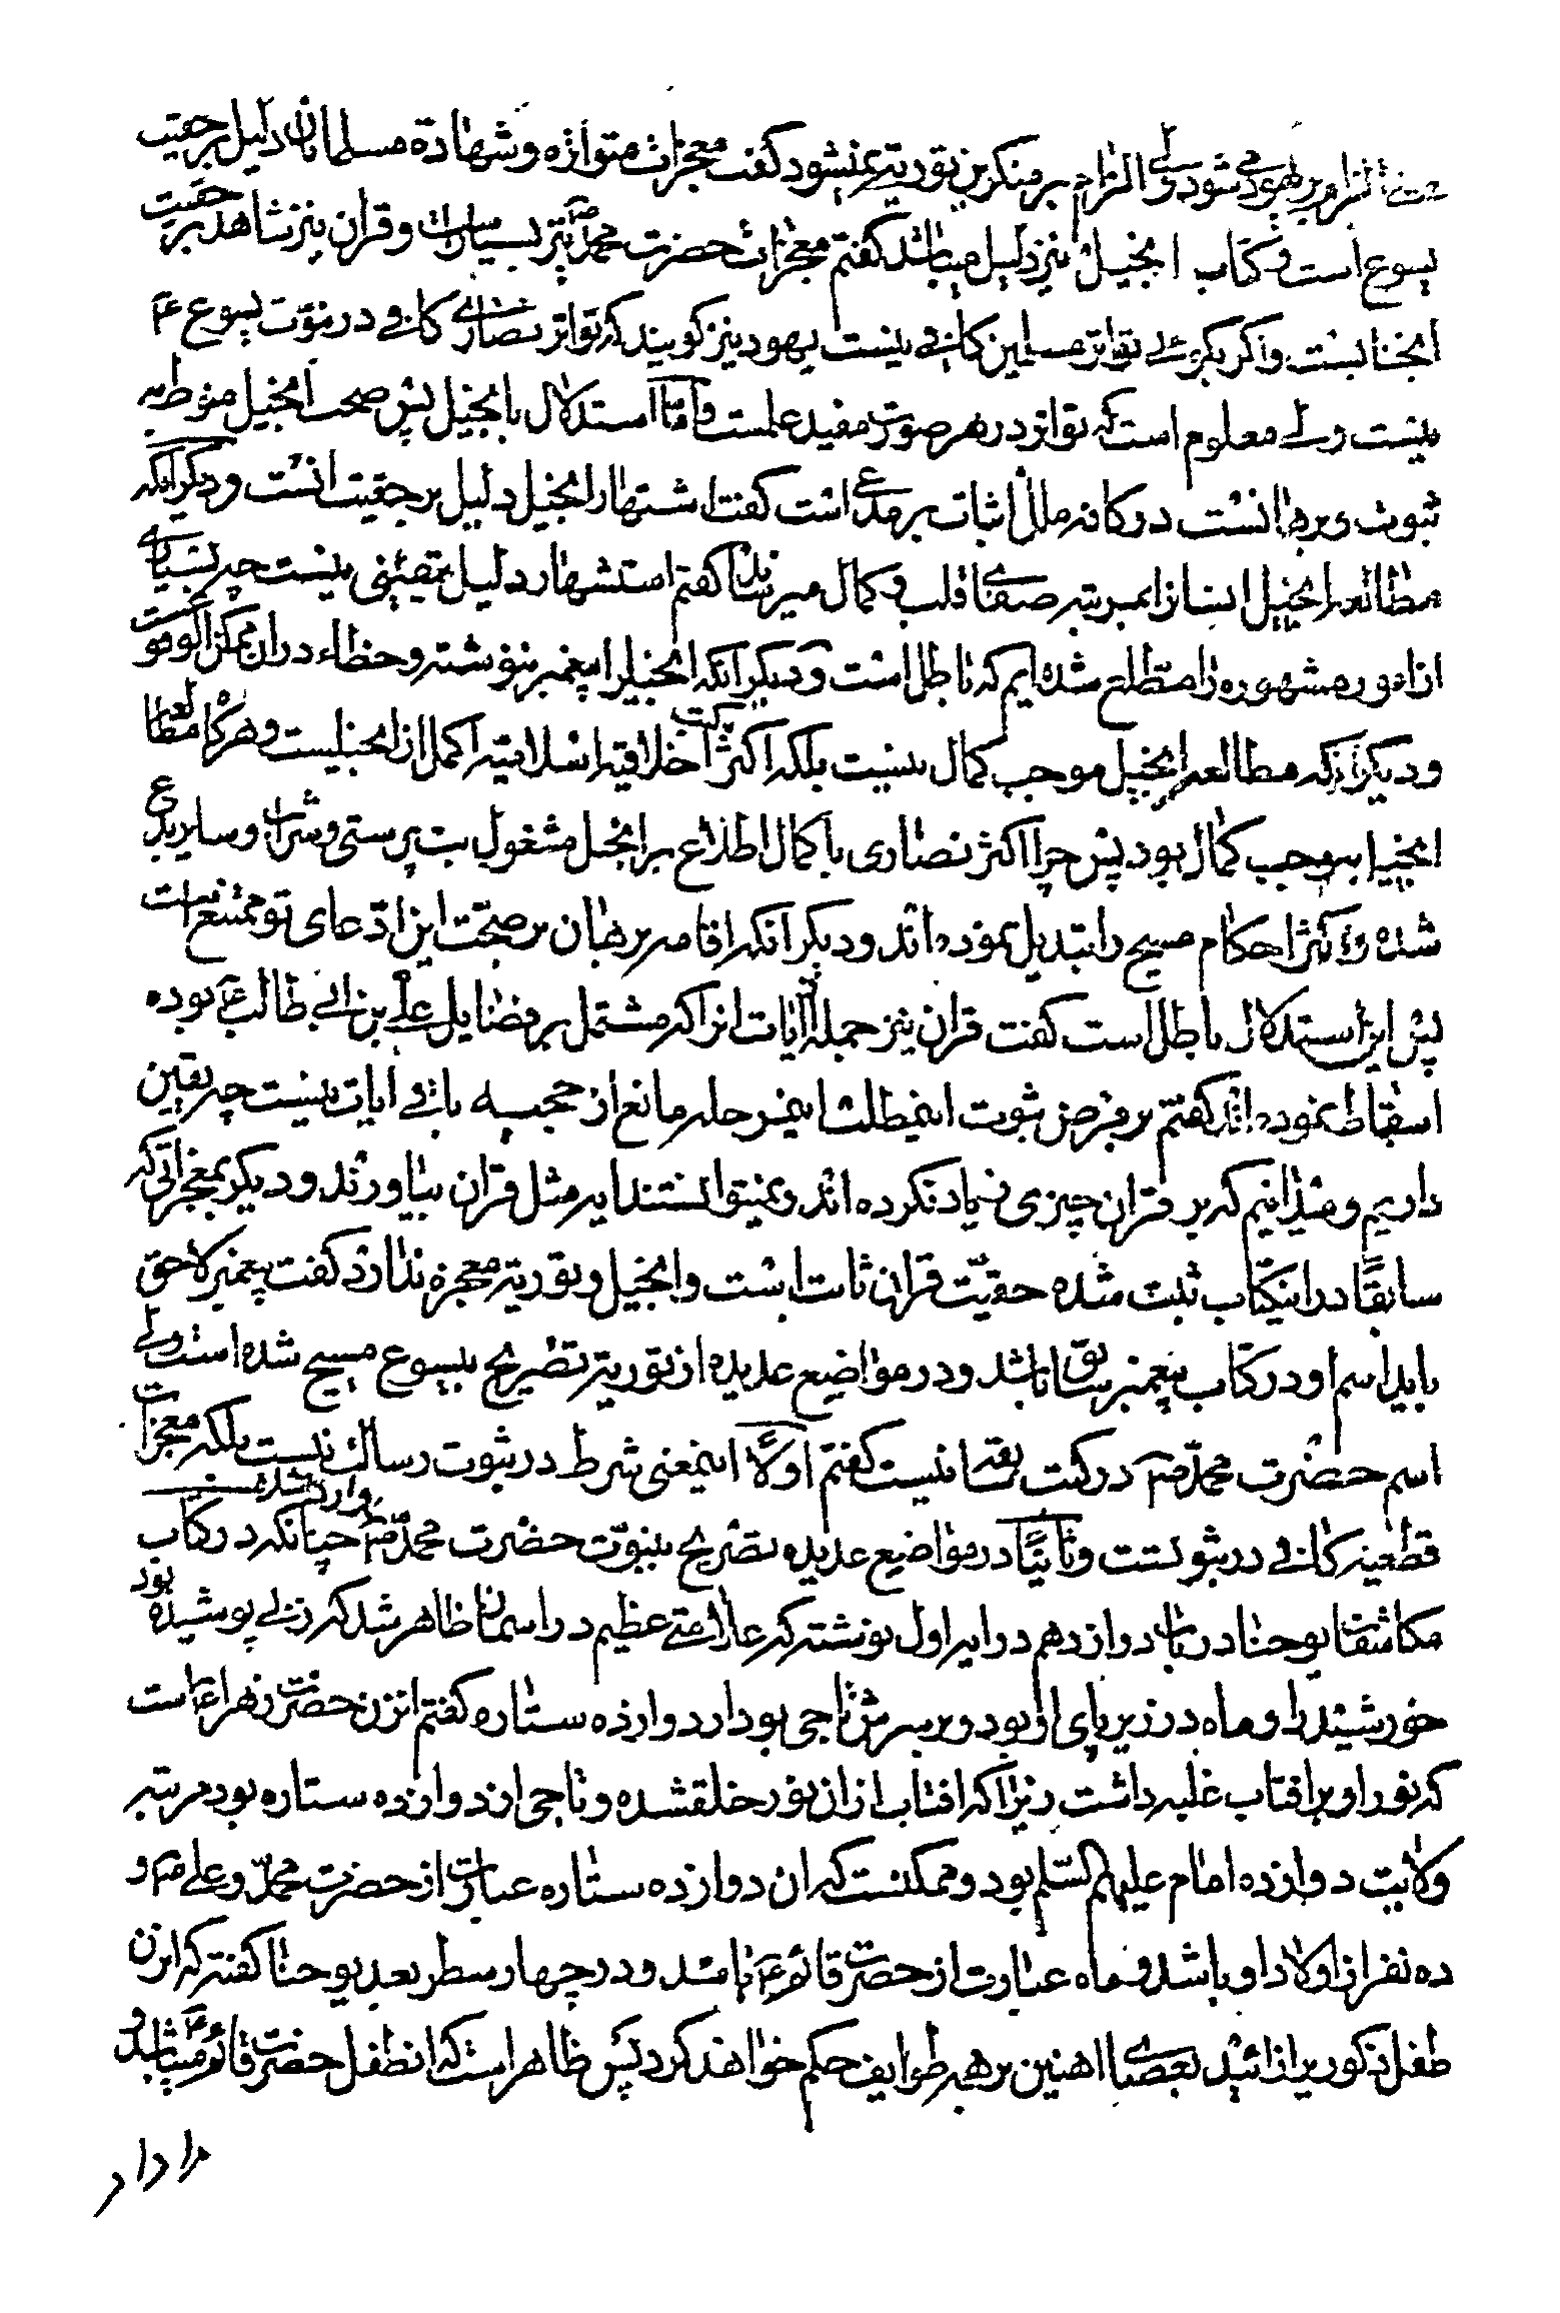 الزام بر یهود می شود ولی الزام بر منکرین توریة نمیشود گفت معجزات متواتره و شهادة مسلمانان دلیل بر حقیت
یسوع است و کتاب انجیل نیز دلیل میباشد گفتم معجزات حضرت محمد ص نیز بسیار است و قران نیز شاهد بر حقیت
انجنابست و اگر بگوئی تواتر مسلمین کافی نیست یهود نیز گویند که تواتر نصاری کافی در نبوت یسوع ع
نیست ولی معلوم است که تواتر در هر صورت مفید علمست و اما استدلال بانجیل پس صحت انجیل منوط به
ثبوت و برهانست در کافه ملل اثبات بر مدعی است گفت اشتهار انجیل دلیل بر حقیت انست و دیگر انکه
مطالعه انجیل انسانرا بمرتبه صفای قلب و کمال میرساند گفتم استشهار دلیل یقینی نیست چه بسیاری
از امور مشهوره را مطلع شده ایم که باطل است و دیگر انکه انجیل را پیغمبر ننوشته و خطاء در ان ممکن الوقوعست
و دیگر انکه مطالعه انجیل موجب کمال نیست بلکه اکثر کتب اخلاقیه اسلامیه اکمل از انجیلست و هرگاه مطالعه
انجیل موجب کمال بود پس چرا اکثر نصاری با کمال اطلاع بر انجیل مشغول بت پرستی و شراب و سایر بدع
شده و اکثر احکام مسیح را تبدیل نموده اند و دیگر انکه اقامه برهان بر صحت این ادعای تو ممتنع است
پس این استدلال باطل است گفت قران نیز جمله از ایات انرا که مشتمل بر فضایل علی بن ابی طالب ع بوده
اسقاط نموده اند گفتم بر فرض ثبوت اینمطلب اینمرحله مانع از حجیه باقی ایات نیست چه یقین
داریم و میدانیم که بر قران چیزی زیاد نکرده اند و نمیتوانستند ایه مثل قران بیاورند و دیگر بمعجزاتی که
سابقا در اینکتاب ثبت شده حقیت قران ثابت است و انجیل و توریة معجزه ندارد گفت پیغمبر لاحق
باید اسم او در کتاب پیغمبر سابق باشد و در مواضع عدیده از توریة تصریح بیسوع مسیح شده است ولی
اسم حضرت محمد ص در کتب سابقه نیست گفتم اولا اینمعنی شرط در ثبوت رسالت نیست بلکه معجزات
قطعیه کافی در ثبوتست و ثانیا در مواضع عدیده تصریح بنبوت حضرت محمد ص وارد شده چنانکه در کتاب
مکاشفات یوحنا در باب دوازدهم در ایه اول نوشته که علامتی عظیم در اسمان ظاهر شد که زنی پوشیده بود
خورشید را و ماه در زیر پای او بود و بر سرش تاجی بود از دوازده ستاره گفتم انزن حضرت زهرا ع است
که نور او بر افتاب غلبه داشت زیرا که افتاب از ان نور خلقشده و تاجی از دوازده ستاره بود مرتبه
ولایت دوازده امام علیهم السلم بود و ممکنست که ان دوازده ستاره عبارت از حضرت محمد و علی ص و
ده نفر از اولاد او باشد و ماه عبارت از حضرت قائم ع باشد و در چهار سطر بعد یوحنا گفته که انزن
طفل ذکوریرا زائید بعصای اهنین بر همه طوایف حکم خواهد کرد پس ظاهر است که انطفل حضرت قائم ع میباشد و